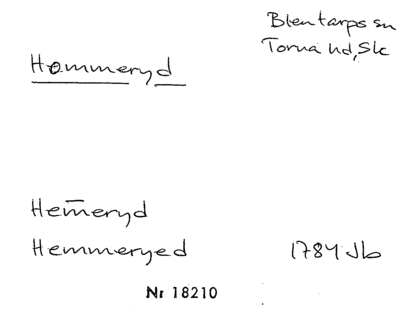 Blentarps sn
Torna hd, Sk
Hemmeryd
Hem̄eryd
Hemmeryed 1784 Jb
Nr 18210